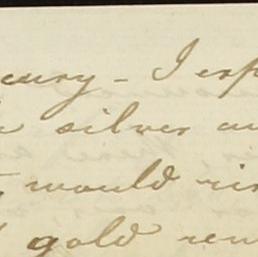 cury - I exp
silver an
would ris
gold rem